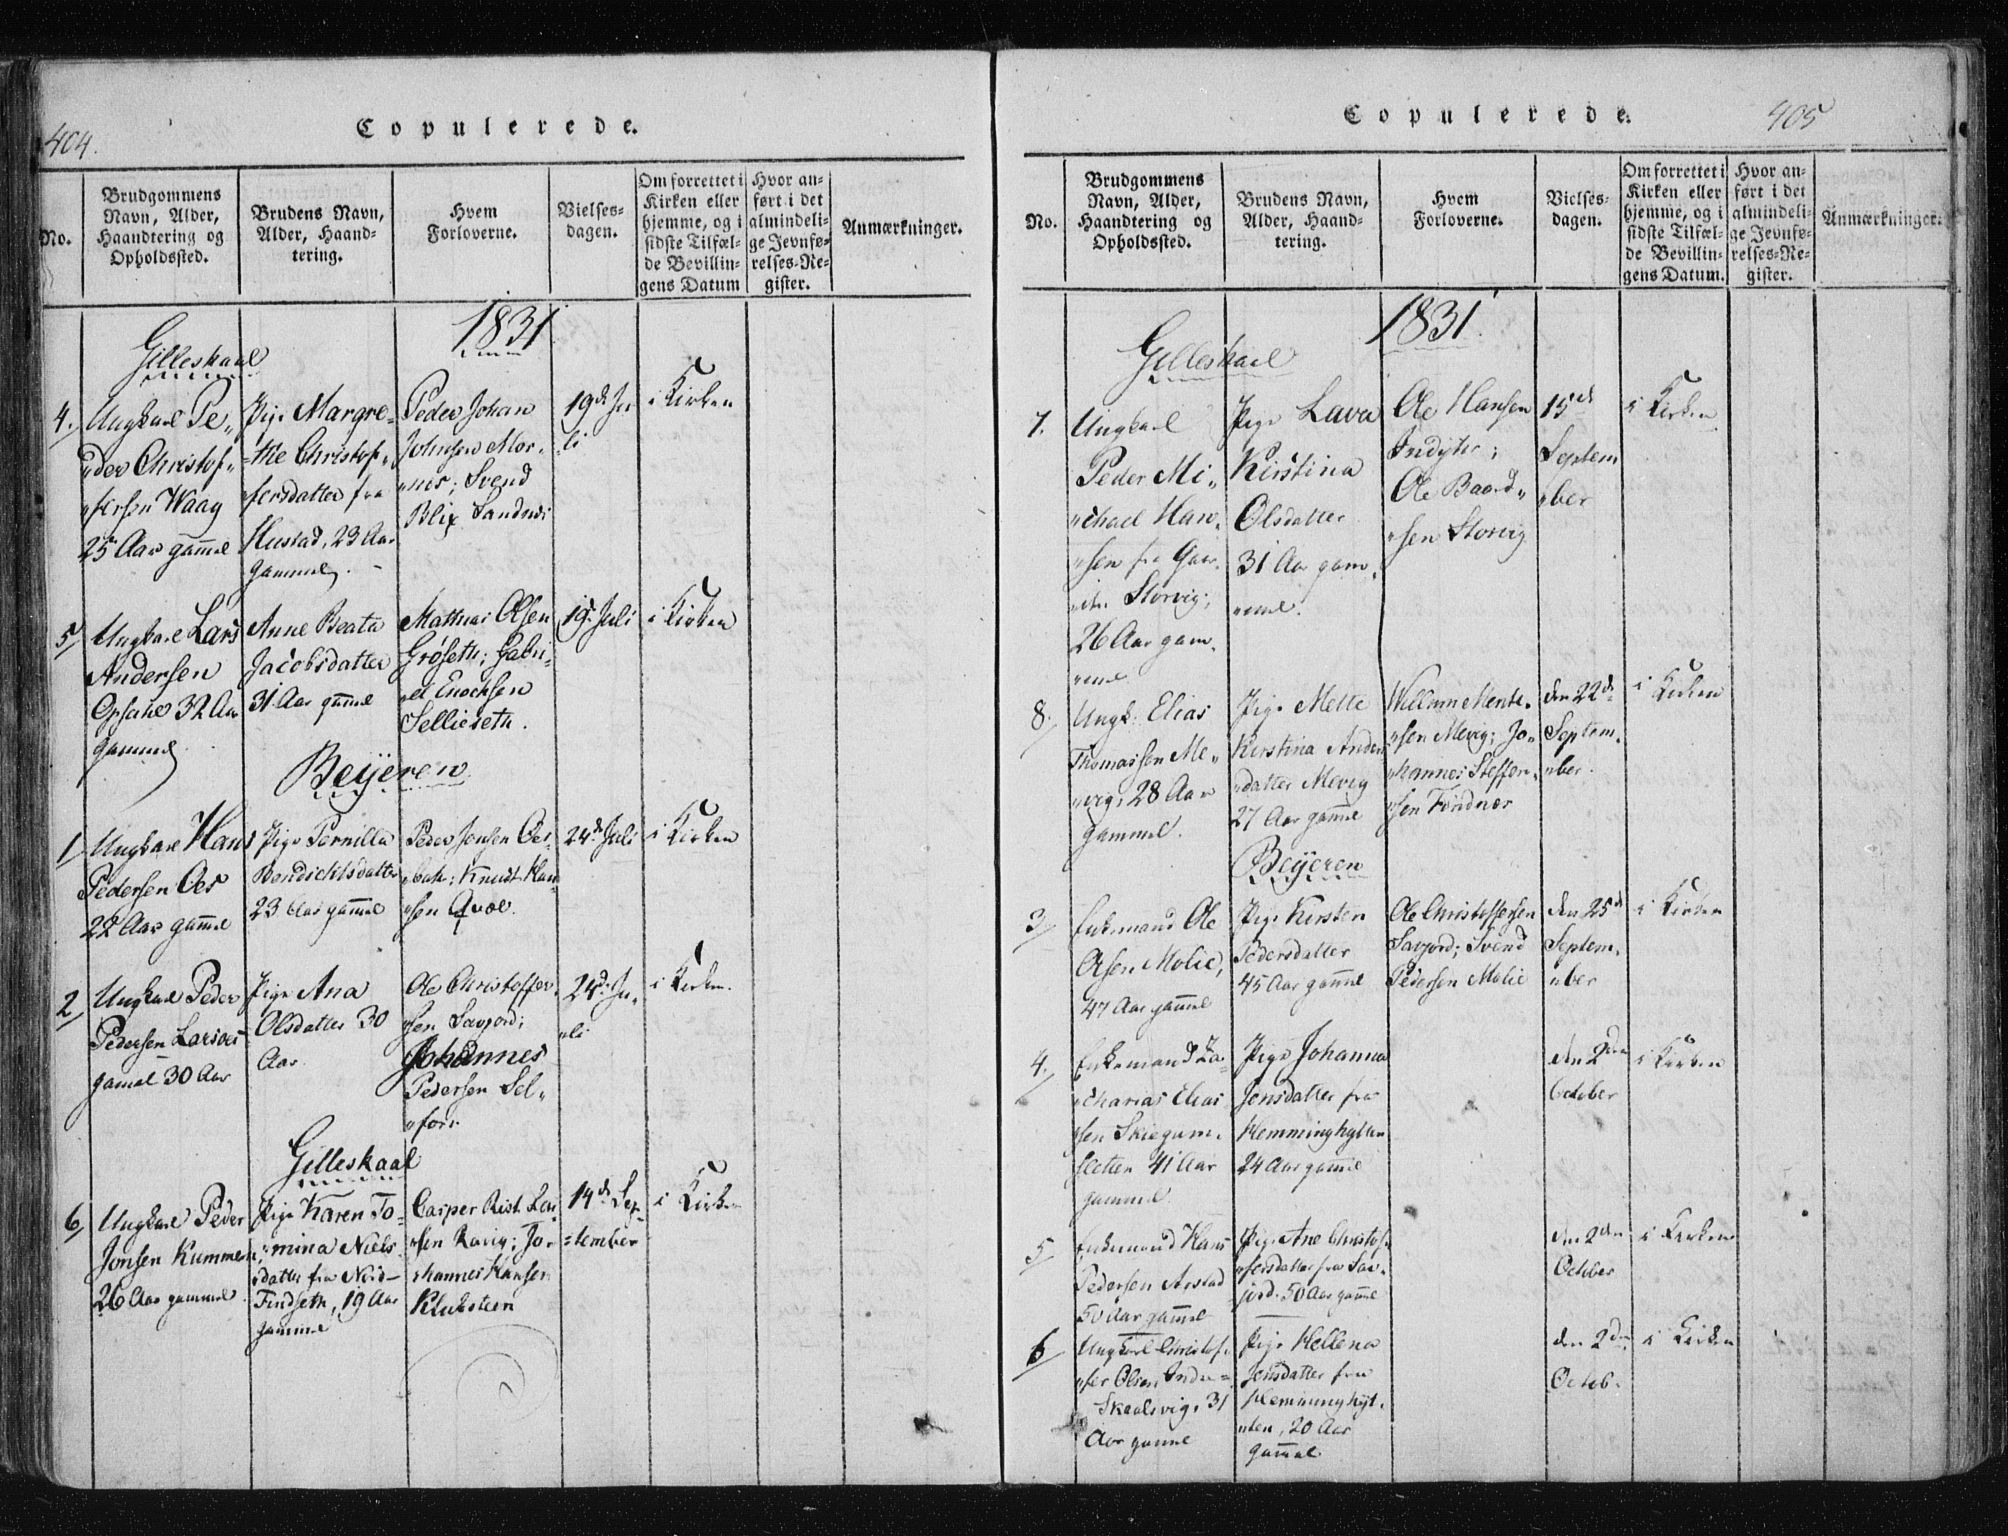 404.
Copulerede.
No.
Brudgommens
Navn, Alder,
Haandtering og
Opholdssted.
Brudens Navn,
Alder, Haand-
tering.
Hvem
Forloverne.
Vielses-
dagen.
Om forrettet i
Kirken eller
hjemme, og i
sidste Tilfæl-
de Bevillin-
gens Datum
Hvor an-
ført i det
almindeli-
ge Jevnfø-
relses-Re-
gister.
Anmærkninger.
1831
Gilleskaal
4.
Ungkarl Pe„
„der Christof„
„fersen Waag
25 Aar gam̄el
Pige Margre-
=the Christof„
„fersdatter fra
Hustad, 23 Aar
gammel.
Peder Johan
Johnsen Mor„
„nes; Svend
Blix Sandnes
19d Ju
„li
i Kirken
5
Ungkarl Lars
Andersen
Opsahl 32 Aar
gammel
Anne Beata
Jacobsdatter
31 Aar gam̄el
Mathias Olsen
Grøseth; Gabri-
„el Enochsen
Sellieseth.
19. Juli
i Kirken
Beijeren
1
Ungkarl Hans
Pedersen Oes
22 Aar gam̄el
Pige Pernilla
Bendichtsdatter
23 Aar gam̄el
Peder Jensen Oes-
„bak; Knudt Han
„sen Qvæl.
24d Juli
i Kirken
2
Ungkarl Peder
Pedersen Larsos
gamal 30 Aar
Pige Ana
Olsdatter 30
Aar.
Ole Christoffer„
„sen Savjord;
Johannes
Pedersen Sel„
„fors
24d Ju„
„li
i Kirken.
Gilleskaal
6
Ungkarl Peder
Jonsen Kummen
26 Aar gammel
Pige Karen To-
„mina Niels
datter fra Nord-
Findseth, 19 Aar
gammel
Casper Rist Lar
„sen Ravig; Jo-
„hannes Hansen
Klubsteen
14d Sep-
=tember
i Kirken
405
Copulerede.
No.
Brudgommens
Navn, Alder,
Haandtering og
Opholdssted.
Brudens Navn,
Alder, Haand-
tering.
Hvem
Forloverne.
Vielses-
dagen.
Om forrettet i
Kirken eller
hjemme, og i
sidste Tilfæl-
de Bevillin-
gens Datum.
Hvor an-
ført i det
almindeli-
ge Jevnfø-
relses-Re-
gister.
Anmærkninger.
1831.
Gilleskaal
7.
Ungkarl
Peder Mi„
„chael Han„
„sen fra Gaar„
„den Storvig;
26 Aar gam„
„mel
Pige Lava
Kirstina
Olsdatter
31 Aar gam„
„mel.
Ole Hansen
Indyhr;
Ole Baard„
„sen Storvig
15d
Septem
„ber
i Kirken
8.
Ungk. Elias
Thomassen Me„
„vig, 28 Aar
gammel.
Pige Mette
Kirstina Anders
„datter Mevig
27 Aar gam̄el
Willum Mente„
„sen Mevig; Jo-
„hannes Steffen„
„sen Findnes
den 22d
Septem„
„ber.
i Kirken
Beijeren
3
Enkemand Ole
Olsen Molie,
47 Aar gam̄el
Pige Kirsten
Pedersdatter
45 Aar gam̄el
Ole Christoffersen
Savjord; Svend
Pedersen Molie
den 25d
Septem„
„ber
i Kirken
4.
Enkemand Za-
„charias Elias
„sen Skiegum„
sletten 41 Aar
gammel
Pige Johanna
Jonsdatter fra
Hemminghytten
24 Aar gam̄el
den 2den
October
i Kirken
5
Enkemand Hans
Pedersen Arstad
50 Aar gam̄el
Pige Ane Christof„
„fersdatter fra Sav„
jord. 50 Aar gam̄el
den 2den
October
i Kirken
6
Ungkarl Christof„
„fer Olsen Indre=
Skaalsvig, 31
Aar gam̄el
Pige Hellena
Jensdatter fra
Hemminghyt„
„ten, 20 Aar
gam̄el
den 2den
Octob.
i Kirken